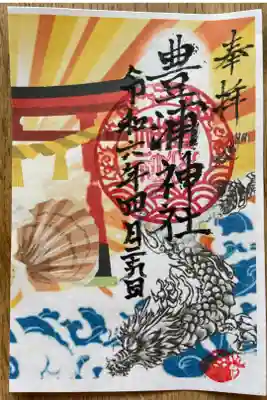 奉拝
豊浦神社
令和六年四月 日